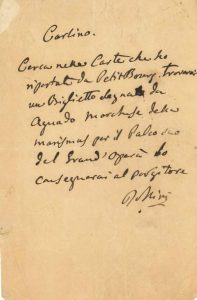 Carlino.
Cerca nelle Carte che ho
riportate da Petit Bourg, troverai
un Biglietto segnato da
Aguado Marchese della
marismas per il Palco suo
del Grand'Opera lo
consegnerai al porgitore
Rossini